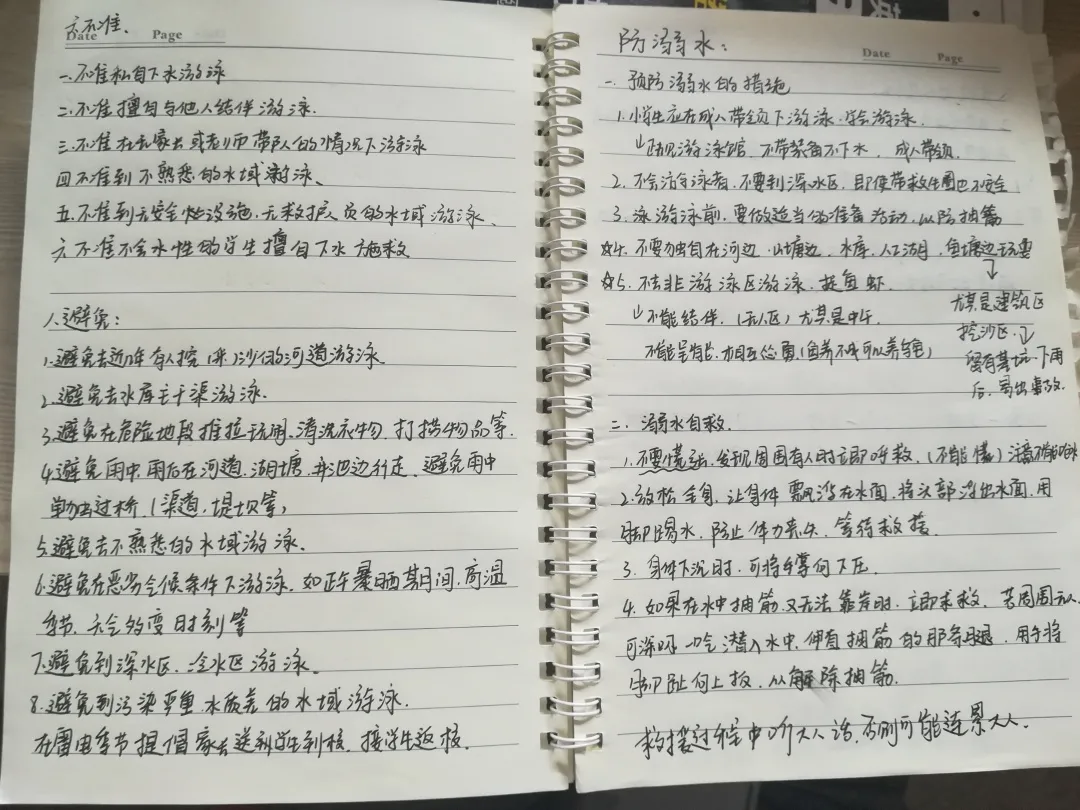 六不准.
Date Page
一.不准私自下水游泳
二.不准擅自与他人结伴游泳.
三.不准在无家长或老师带队的情况下游泳
四.不准到不熟悉的水域游泳、
五.不准到无安全设施,无救护人员的水域游泳、
六.不准不会水性的学生擅自下水施救
八避免:
1.避免去近年有人挖(采)沙的河道游泳
2.避免去水库主干渠游泳.
3.避免在危险地段推拉玩闹、清洗衣物、打捞物品等.
4.避免雨中、雨后在河道、湖塘、井池边行走、避免雨中
单独过桥(渠道,堤坝等)
5.避免去不熟悉的水域游泳.
6.避免在恶劣气候条件下游泳.如正午暴晒期间,高温
季节、天气多变时刻等
7.避免到深水区、冷水区游泳、
8.避免到污染严重、水质差的水域游泳.
在雷电季节提倡家长送到学生到校,接学生返校.
防溺水:
Date Page
一.预防溺水的措施
1.小学生应在成人带领下游泳、学会游泳.
正规游泳馆、不带装备不下水、成人带领.
2.不会游泳者,不要到深水区,即使带救生圈也不安全
3.游泳前,要做适当的准备活动,以防抽筋
☆4.不要独自在河边、山塘边、水库、人工湖、鱼塘边玩耍
☆5.不去非游泳区游泳、捉鱼虾.
尤其是建筑区
挖沙区.
留有基坑.下雨
后,易出事故.
不能结伴.(无人区)尤其是中午.
不能逞能.相互怂恿
二.溺水自救.
1.不要慌张,发现周围有人时立即呼救,(不能慌)注意不能呛水
2.放松全身,让身体飘浮在水面,将头部浮出水面,用
脚踢水,防止体力丧失,等待救援.
3.身体下沉时,可将手掌向下压.
4.如果在水中抽筋又无法靠岸时,立即求救.若周围无人,
可深呼一口气潜入水中,伸直抽筋的那条腿,用手将
脚趾向上扳,以解除抽筋.
救援过程中听大人话,否则可能连累大人.